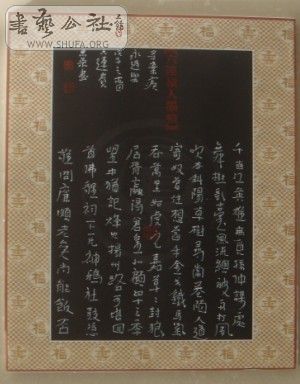 書藝公社
WWW.SHUFA.ORG
千古江山英雄無覓孫仲謀處
舞榭歌臺風流總被雨打風
吹去斜陽草樹尋常巷陌人道
寄奴曾住想當年金戈鐵馬氣
吞萬里如虎元嘉草草封狼
居胥贏得倉皇北顧四十三年
望中猶記烽火揚州路可堪回
首佛貍祠下一片神鴉社鼓憑
誰問廉頗老矣尚能飯否
辛棄疾
永遇樂